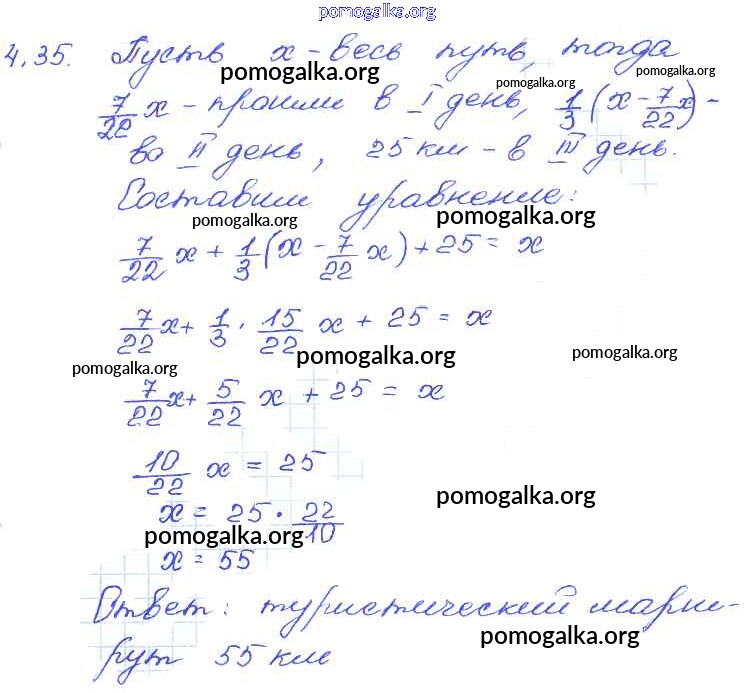 pomogalka.org
4.35. Пусть x - весь путь, тогда
pomogalka.org pomogalka.org pomogalka.org
7/22 x - прошли в I день, 1/3 (x - 7/22 x) -
во II день, 25 км - в III день.
Составим уравнение:
pomogalka.org pomogalka.org
7/22 x + 1/3 (x - 7/22 x) + 25 = x
7/22 x + 1/3 · 15/22 x + 25 = x
pomogalka.org pomogalka.org pomogalka.org
7/22 x + 5/22 x + 25 = x
10/22 x = 25
pomogalka.org
x = 25 · 22/10
pomogalka.org
x = 55
Ответ: туристический марш-
pomogalka.org
рут 55 км